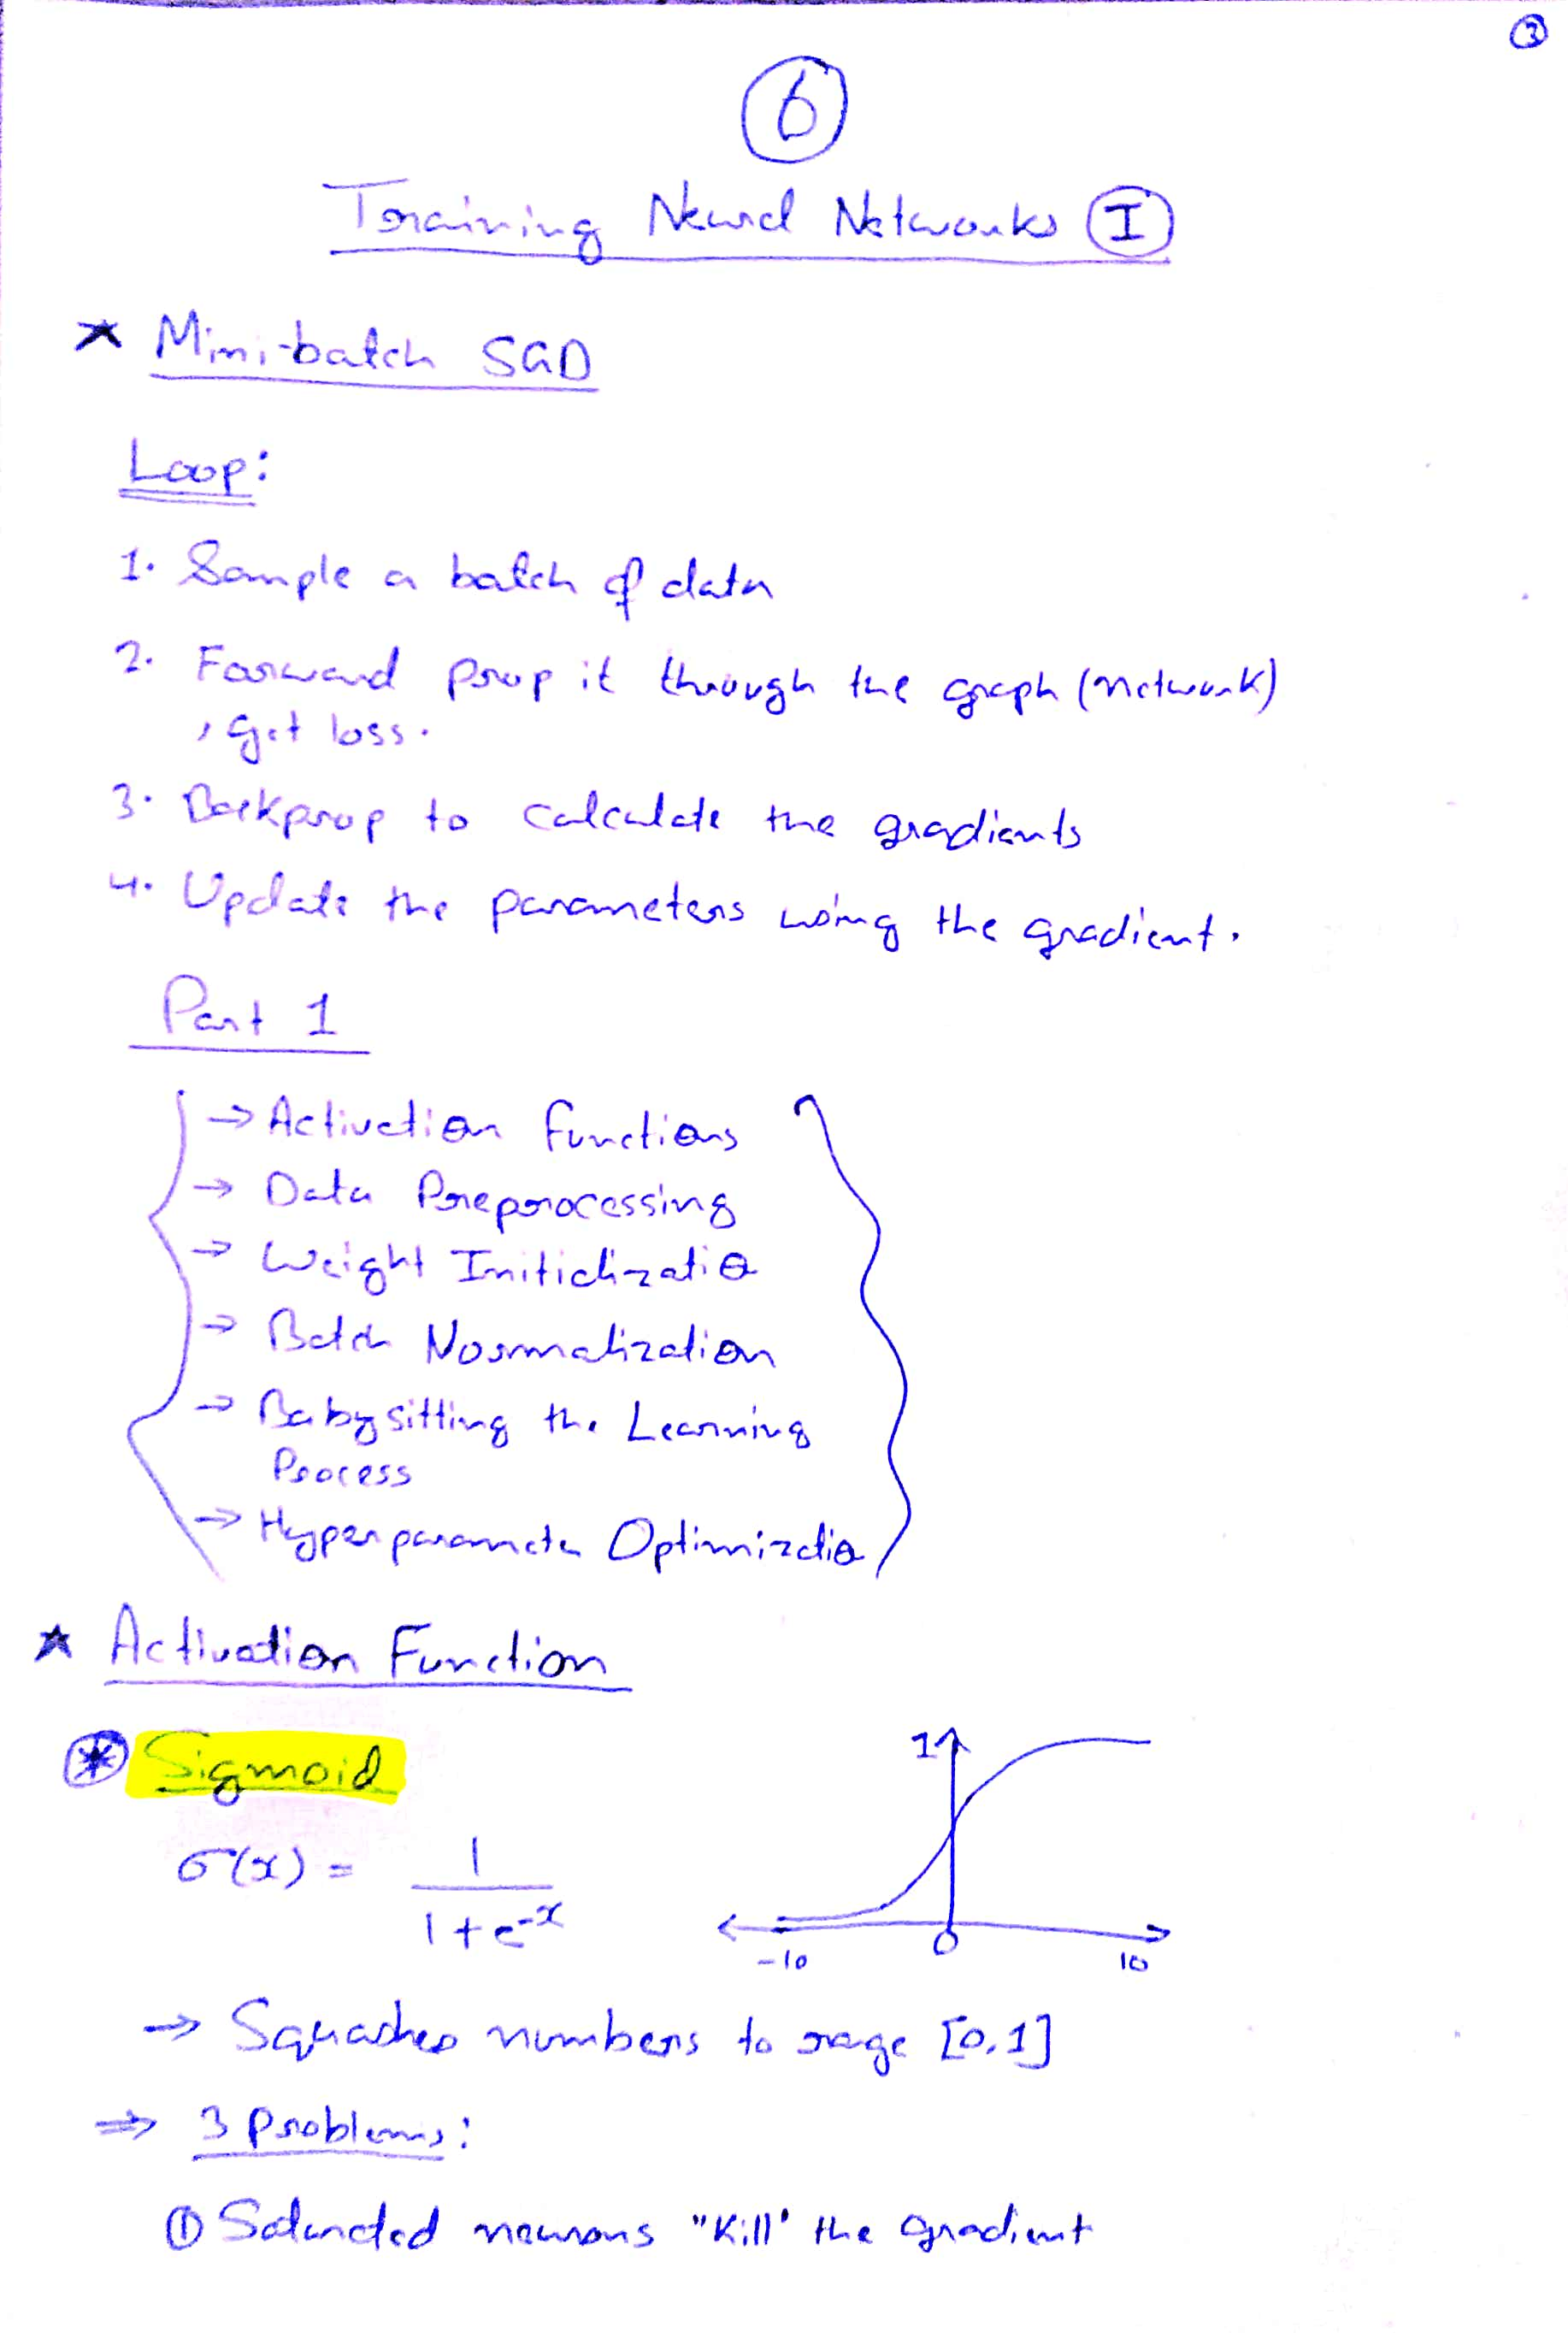 ③
⑥
Training Neural Networks Ⓘ
★ Mini-batch SGD
Loop:
1. Sample a batch of data
2. Forward prop it through the graph (network)
, get loss.
3. Backprop to calculate the gradients
4. Update the parameters using the gradient.
Part 1
→ Activation Functions
→ Data Preprocessing
→ Weight Initialization
→ Batch Normalization
→ Babysitting the Learning
Process
→ Hyperparameter Optimization
★ Activation Function
⊛ Sigmoid
σ(x) = 1 / (1 + e^-x)
1
-10 0 10
→ Squashes numbers to range [0,1]
⇒ 3 Problems:
① Saturated neurons "Kill" the gradient